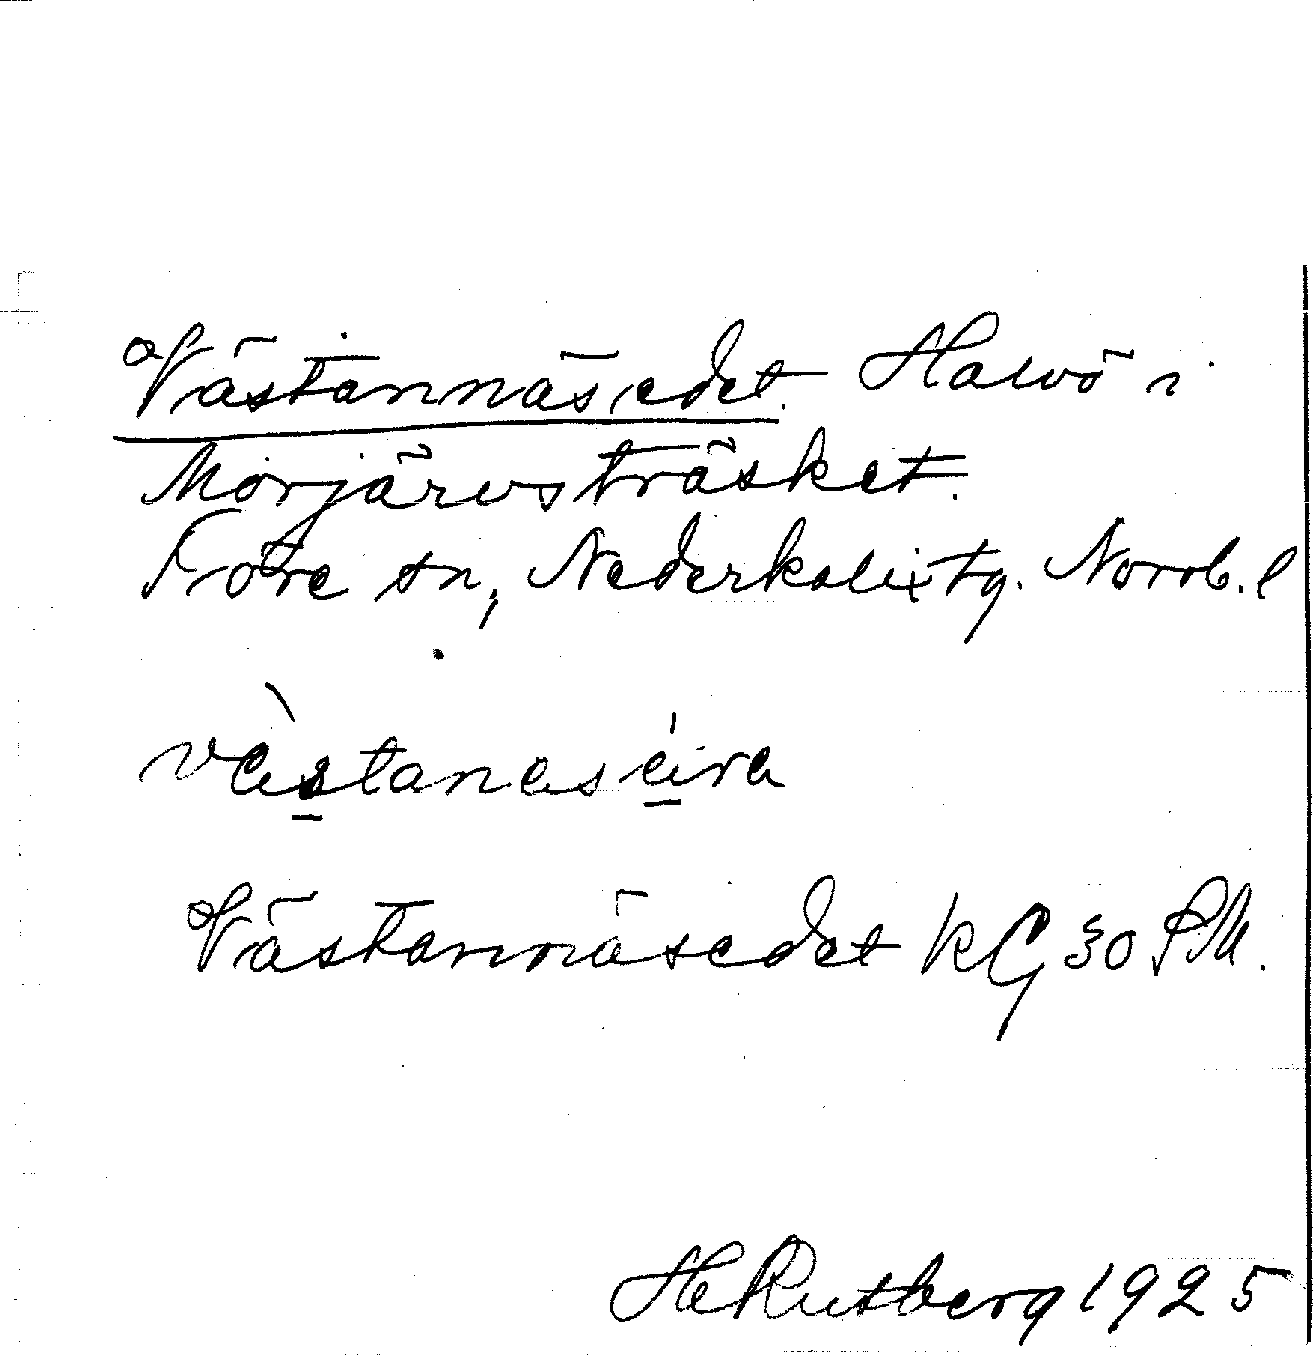 Västannäsedet. Halvö i
Morjärvsträsket.
Töre sn, Nederkalix tg. Norrb. l
västanæsæ̀ıra
Västannäsedet KG 30 SM.
H Rutberg 1925